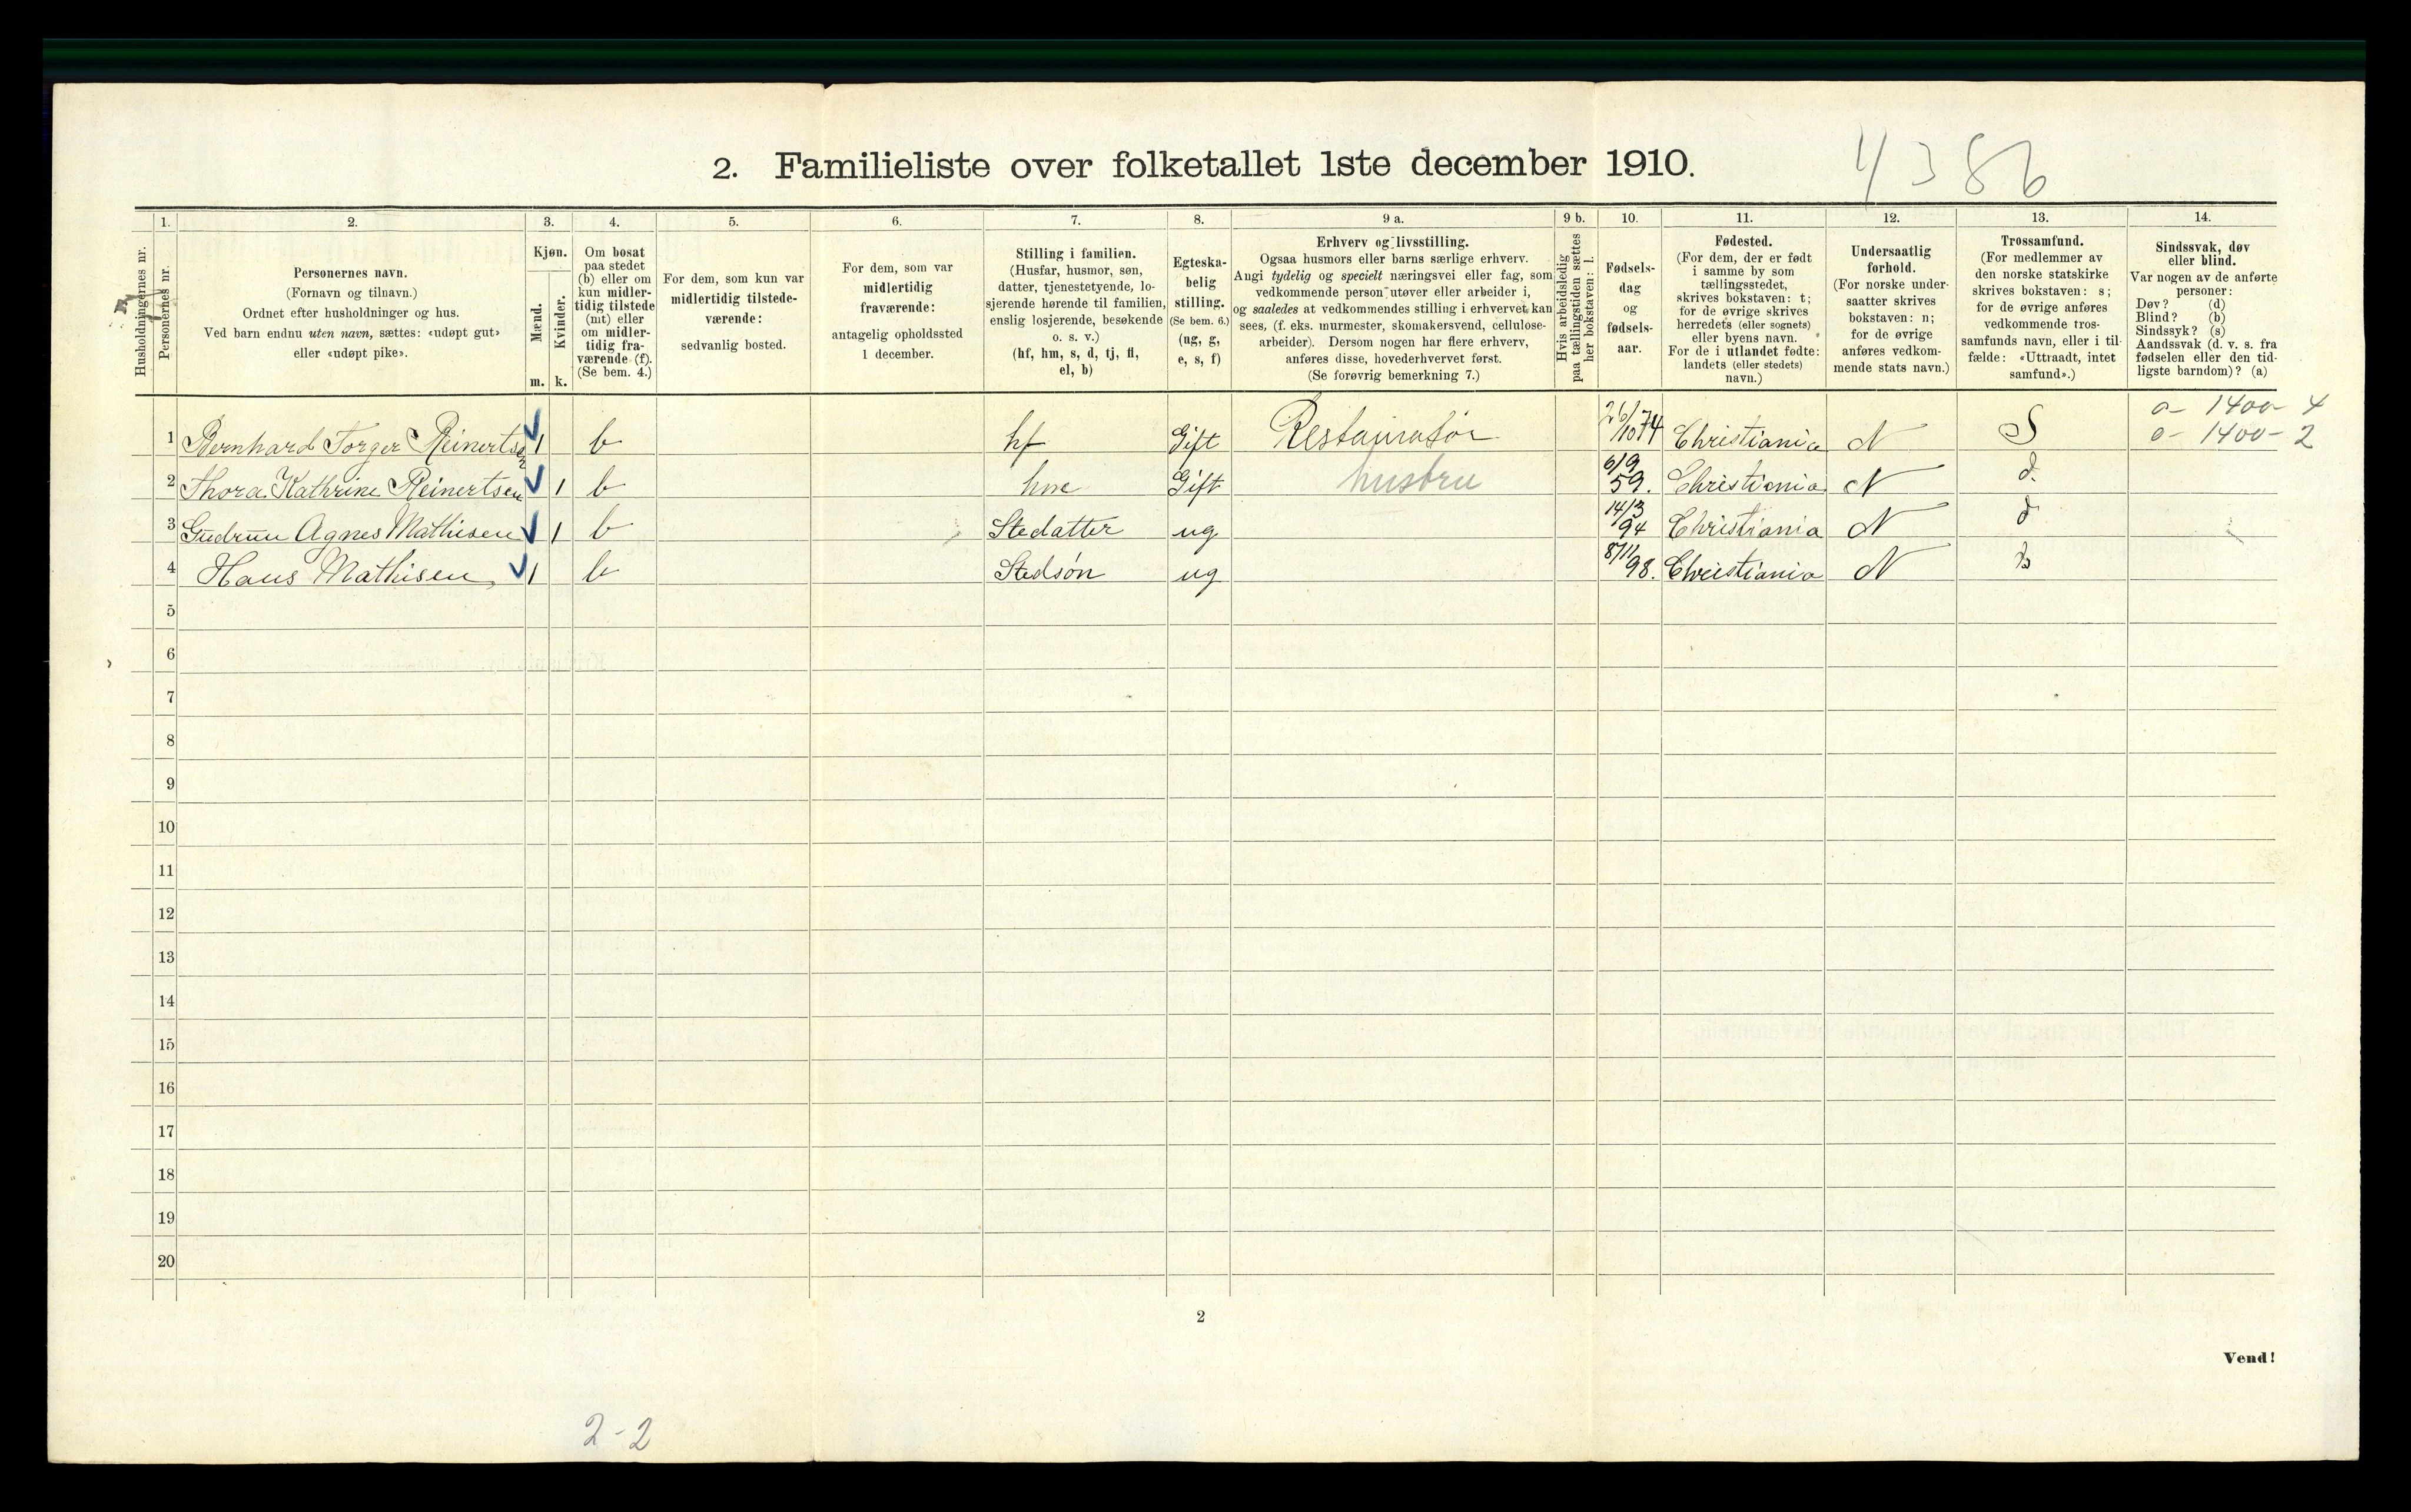 4386
2. Familieliste over folketallet 1ste december 1910.
1. 2. 3. 4. 5. 6. 7. 8. 9 a. 9 b. 10. 11. 12. 13. 14.
Husholdningernes nr.
Personernes nr.
Personernes navn.
(Fornavn og tilnavn.)
Ordnet efter husholdninger og hus.
Ved barn endnu uten navn, sættes: «udøpt gut»
eller «udøpt pike».
Kjøn.
Mænd.
Kvinder.
m. k.
Om bosat
paa stedet
(b) eller om
kun midler-
tidig tilstede
(mt) eller
om midler-
tidig fra-
værende (f).
(Se bem. 4.)
For dem, som kun var
midlertidig tilstede-
værende:
sedvanlig bosted.
For dem, som var
midlertidig
fraværende:
antagelig opholdssted
1 december.
Stilling i familien.
(Husfar, husmor, søn,
datter, tjenestetyende, lo-
sjerende hørende til familien,
enslig losjerende, besøkende
o. s. v.)
(hf, hm, s, d, tj, fl,
el, b)
Egteska-
belig
stilling.
(Se bem. 6.)
(ug, g,
e, s, f)
Erhverv og livsstilling.
Ogsaa husmors eller barns særlige erhverv.
Angi tydelig og specielt næringsvei eller fag, som
vedkommende person utøver eller arbeider i,
og saaledes at vedkommendes stilling i erhvervet kan
sees, (f. eks. murmester, skomakersvend, cellulose-
arbeider). Dersom nogen har flere erhverv,
anføres disse, hovederhvervet først.
(Se forøvrig bemerkning 7.)
Hvis arbeidsledig
paa tællingstiden sættes
her bokstaven: l.
Fødsels-
dag
og
fødsels-
aar.
Fødested.
(For dem, der er født
i samme by som
tællingsstedet,
skrives bokstaven: t;
for de øvrige skrives
herredets (eller sognets)
eller byens navn.
For de i utlandet fødte:
landets (eller stedets)
navn.)
Undersaatlig
forhold.
(For norske under-
saatter skrives
bokstaven: n;
for de øvrige
anføres vedkom-
mende stats navn.)
Trossamfund.
(For medlemmer av
den norske statskirke
skrives bokstaven: s;
for de øvrige anføres
vedkommende tros-
samfunds navn, eller i til-
fælde: «Uttraadt, intet
samfund».)
Sindssvak, døv
eller blind.
Var nogen av de anførte
personer:
Døv? (d)
Blind? (b)
Sindssyk? (s)
Aandssvak (d. v. s. fra
fødselen eller den tid-
ligste barndom)? (a)
o- 1400- 4
o- 1400- 2
1 Bernhard Torger Reinertsen 1 b hf Gift Restauratør 26/10 74 Christiania N S
2 Thora Kathrine Reinertsen 1 b Gift husbru 6/9 59. Christiania N d.
3 Gudrun Agnes Mathisen 1 b Stedatter ug 14/3 94 Christiania N d
4 Hans Mathisen 1 b Stedsön ug 8/11 98. Christiania N
5
6
7
8
9
10
11
12
13
14
15
16
17
18
19
20
2
Vend!
2-2